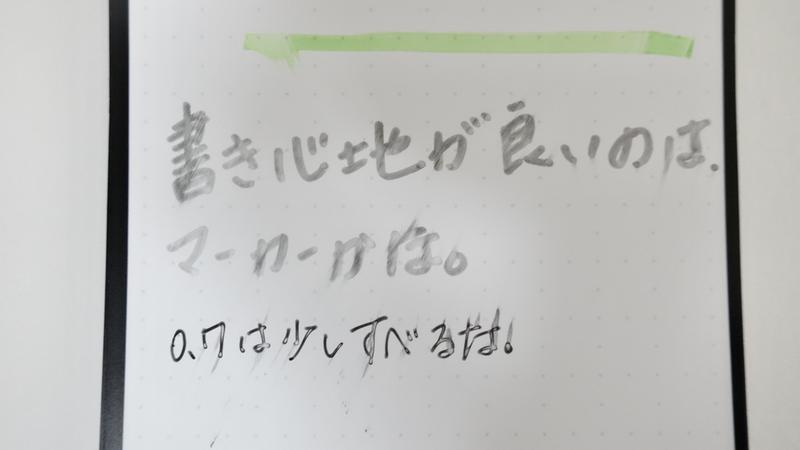 書き心地が良いのは.
マーカーかな。
0.7は少しすべるな。